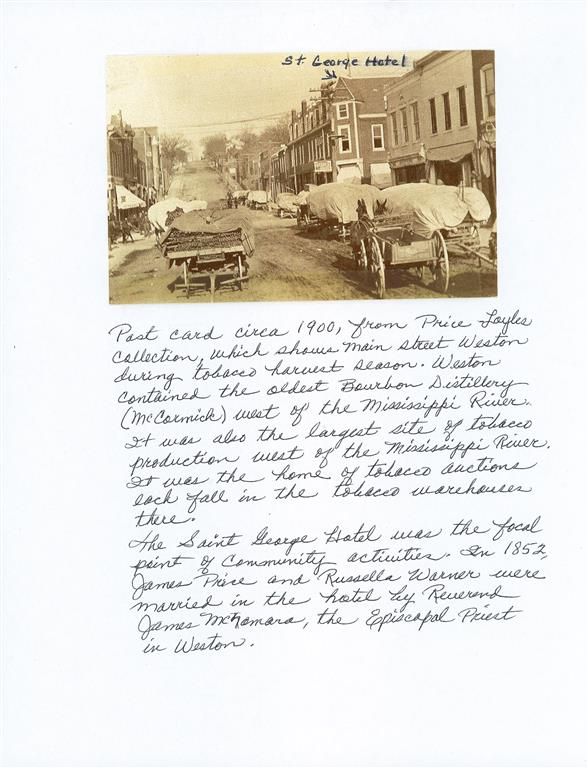 St. George Hotel
Post card circa 1900, from Price Loyles
Collection, which shows Main Street Weston
during tobacco harvest season. Weston
contained the oldest Bourbon Distillery
(McCormick) west of the Mississippi River.
It was also the largest site of tobacco
production west of the Mississippi River.
It was the home of tobacco auctions
each fall in the tobacco warehouses
there.
The Saint George Hotel was the focal
point of Community activities. In 1852,
James Price and Russella Warner were
married in the hotel by Reverend
James McNamara, the Episcopal Priest
in Weston.